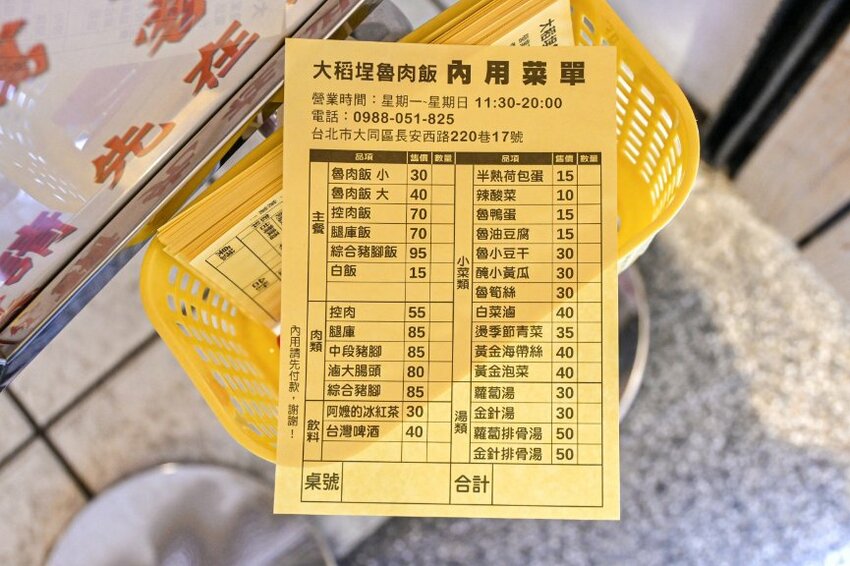 大稻埕魯肉飯 內用菜單
營業時間：星期一~星期日 11:30-20:00
電話：0988-051-825
台北市大同區長安西路220巷17號
品項 售價 數量
主餐
魯肉飯 小 30
魯肉飯 大 40
控肉飯 70
腿庫飯 70
綜合豬腳飯 95
白飯 15
肉類
控肉 55
腿庫 85
中段豬腳 85
滷大腸頭 80
綜合豬腳 85
飲料
阿嬤的冰紅茶 30
台灣啤酒 40
品項 售價 數量
小菜類
半熟荷包蛋 15
辣酸菜 10
魯鴨蛋 15
魯油豆腐 15
魯小豆干 30
醃小黃瓜 30
魯筍絲 30
白菜滷 40
燙季節青菜 35
黃金海帶絲 40
黃金泡菜 40
湯類
蘿蔔湯 30
金針湯 30
蘿蔔排骨湯 50
金針排骨湯 50
桌號
合計
內用請先付款，謝謝！